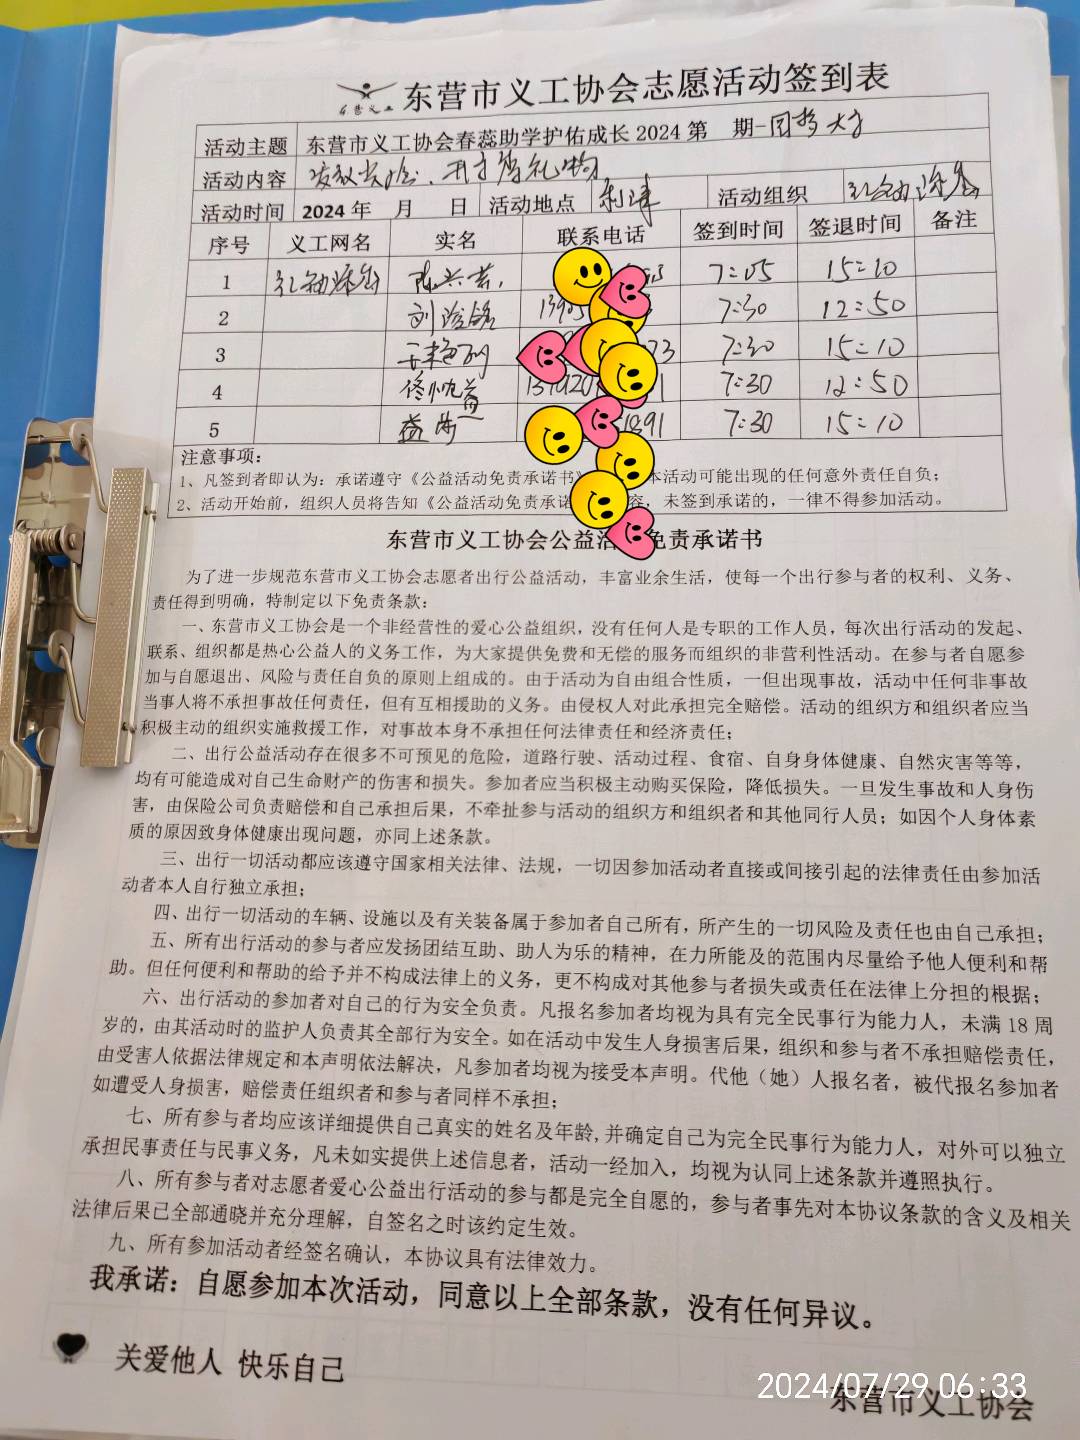 东营义工 东营市义工协会志愿活动签到表
活动主题 东营市义工协会春蕊助学护佑成长 2024 第 期-圆梦大学
活动内容 发放 开学 礼物
活动时间 2024 年 月 日 活动地点 利津 活动组织
序号 义工网名 实名 联系电话 签到时间 签退时间 备注
1 7:05 15:10
2 刘 7:30 12:50
3 7:30 15:10
4 佟 7:30 12:50
5 1891 7:30 15:10
注意事项:
1、凡签到者即认为:承诺遵守《公益活动免责承诺书》 本活动可能出现的任何意外责任自负;
2、活动开始前,组织人员将告知《公益活动免责承诺 容,未签到承诺的,一律不得参加活动。
东营市义工协会公益活 免责承诺书
为了进一步规范东营市义工协会志愿者出行公益活动,丰富业余生活,使每一个出行参与者的权利、义务、
责任得到明确,特制定以下免责条款:
一、东营市义工协会是一个非经营性的爱心公益组织,没有任何人是专职的工作人员,每次出行活动的发起、
联系、组织都是热心公益人的义务工作,为大家提供免费和无偿的服务而组织的非营利性活动。在参与者自愿参
加与自愿退出、风险与责任自负的原则上组成的。由于活动为自由组合性质,一但出现事故,活动中任何非事故
当事人将不承担事故任何责任,但有互相援助的义务。由侵权人对此承担完全赔偿。活动的组织方和组织者应当
积极主动的组织实施救援工作,对事故本身不承担任何法律责任和经济责任;
二、出行公益活动存在很多不可预见的危险,道路行驶、活动过程、食宿、自身身体健康、自然灾害等等,
均有可能造成对自己生命财产的伤害和损失。参加者应当积极主动购买保险,降低损失。一旦发生事故和人身伤
害,由保险公司负责赔偿和自己承担后果,不牵扯参与活动的组织方和组织者和其他同行人员;如因个人身体素
质的原因致身体健康出现问题,亦同上述条款。
三、出行一切活动都应该遵守国家相关法律、法规,一切因参加活动者直接或间接引起的法律责任由参加活
动者本人自行独立承担;
四、出行一切活动的车辆、设施以及有关装备属于参加者自己所有,所产生的一切风险及责任也由自己承担;
五、所有出行活动的参与者应发扬团结互助、助人为乐的精神,在力所能及的范围内尽量给予他人便利和帮
助。但任何便利和帮助的给予并不构成法律上的义务,更不构成对其他参与者损失或责任在法律上分担的根据;
六、出行活动的参加者对自己的行为安全负责。凡报名参加者均视为具有完全民事行为能力人,未满 18 周
岁的,由其活动时的监护人负责其全部行为安全。如在活动中发生人身损害后果,组织和参与者不承担赔偿责任,
由受害人依据法律规定和本声明依法解决,凡参加者均视为接受本声明。代他(她)人报名者,被代报名参加者
如遭受人身损害,赔偿责任组织者和参与者同样不承担;
七、所有参与者均应该详细提供自己真实的姓名及年龄,并确定自己为完全民事行为能力人,对外可以独立
承担民事责任与民事义务,凡未如实提供上述信息者,活动一经加入,均视为认同上述条款并遵照执行。
八、所有参与者对志愿者爱心公益出行活动的参与都是完全自愿的,参与者事先对本协议条款的含义及相关
法律后果已全部通晓并充分理解,自签名之时该约定生效。
九、所有参加活动者经签名确认,本协议具有法律效力。
我承诺:自愿参加本次活动,同意以上全部条款,没有任何异议。
关爱他人 快乐自己
2024/07/29 06:33
东营市义工协会